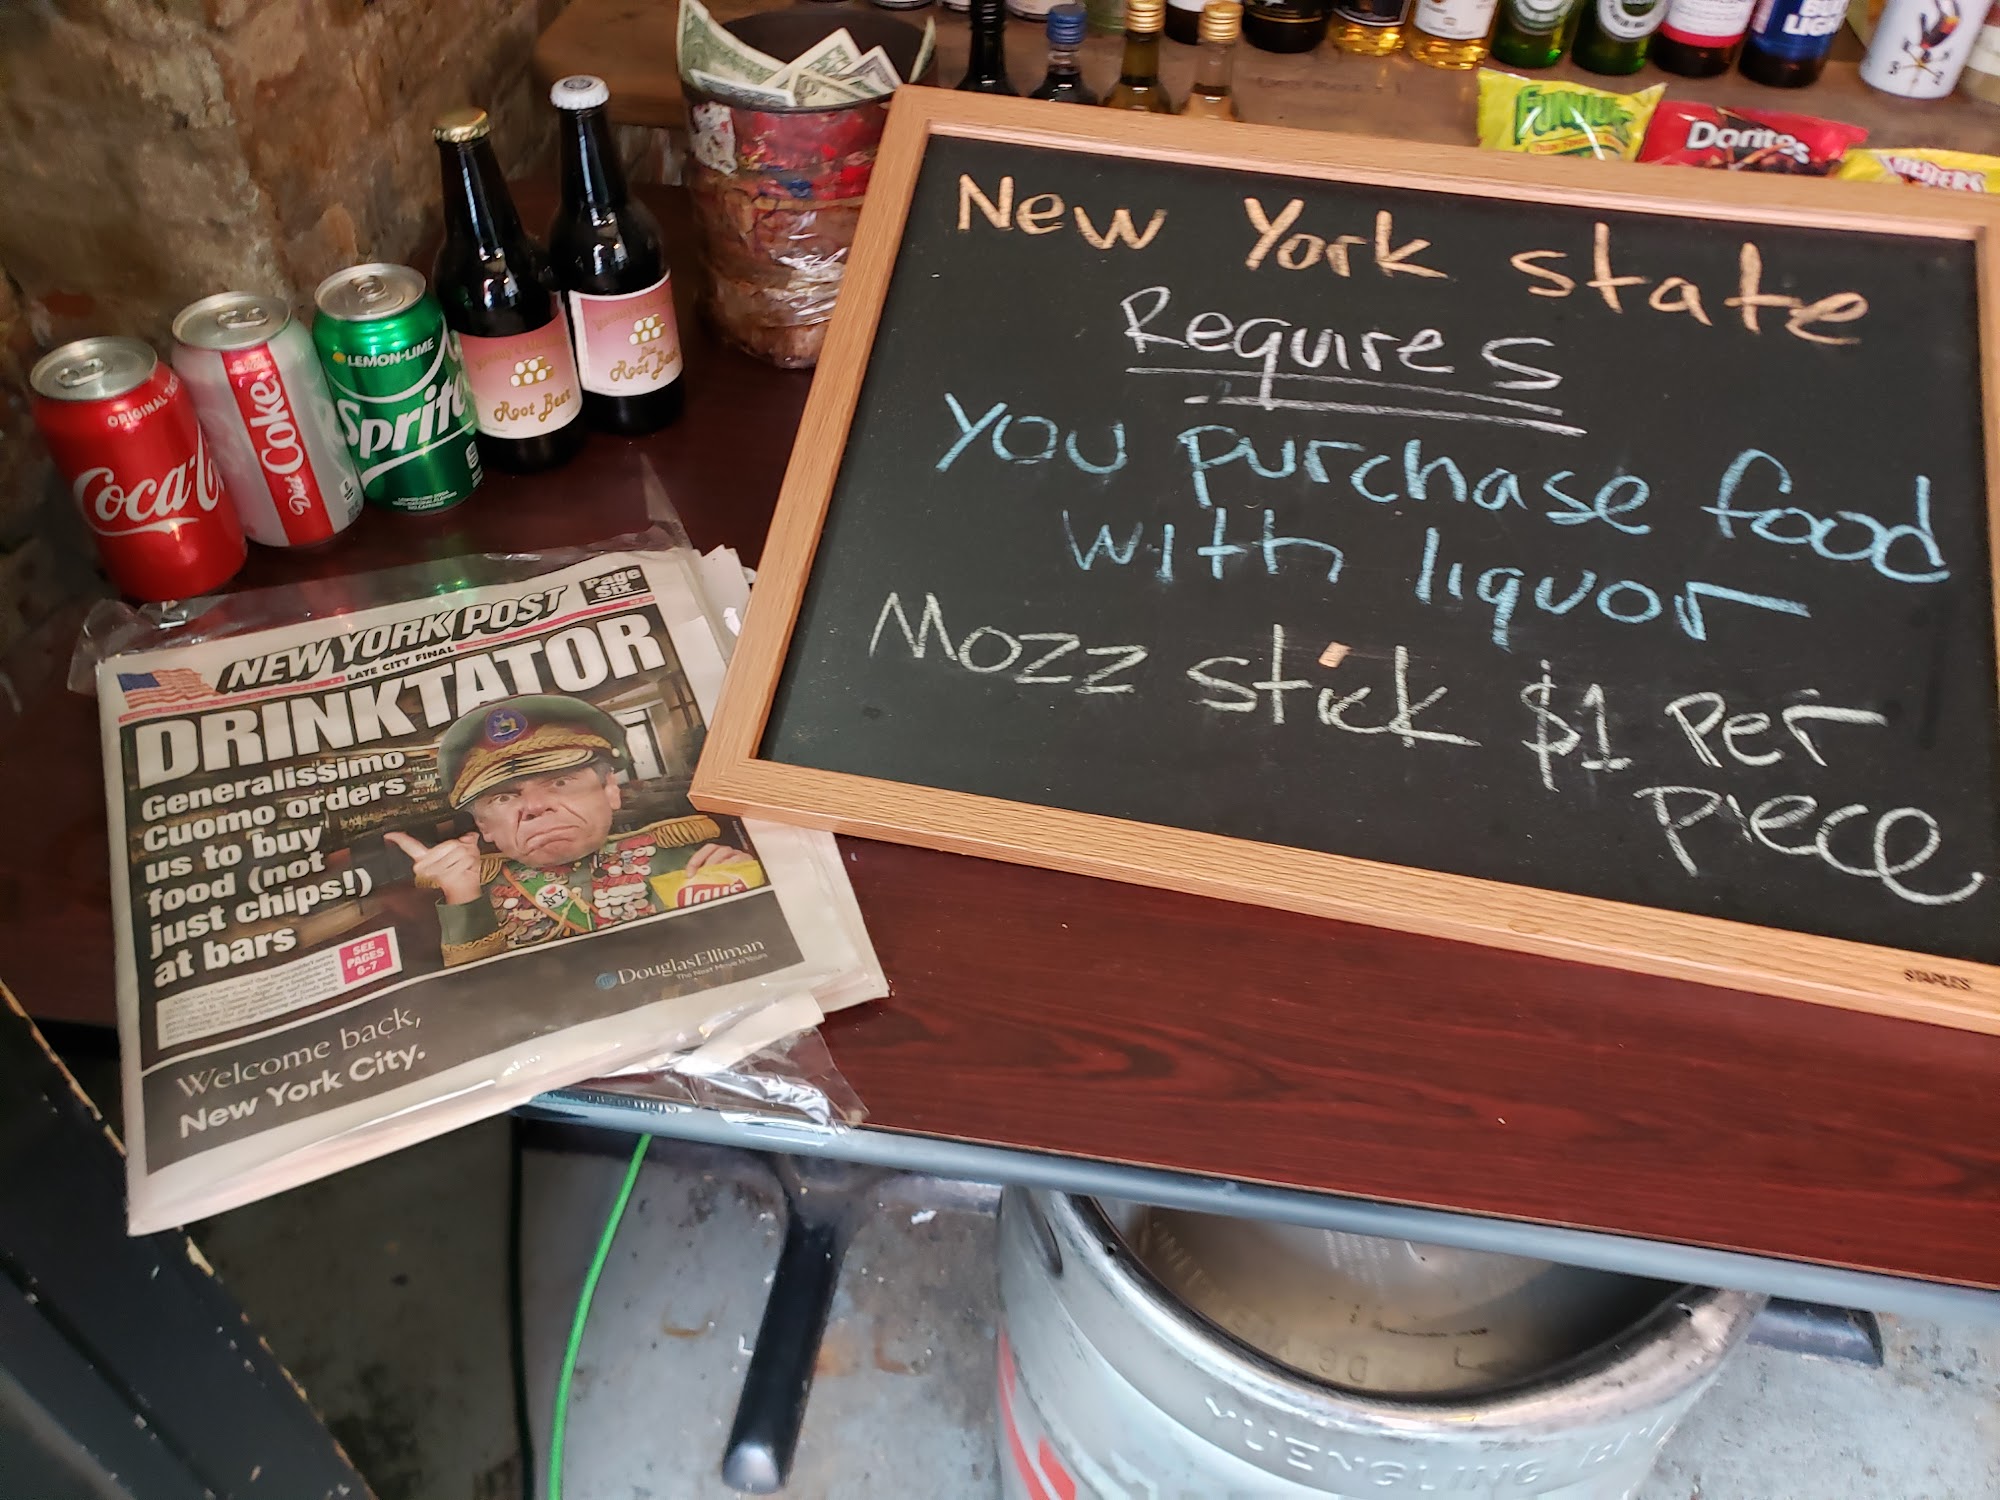 BUD
LIGHT
FUNYUNS
Doritos
New York state
Requires
you purchase food
with liquor
Mozz stick $1 Per
piece
STAPLES
ORIGINAL
Coca-
Diet Coke
LEMON-LIME
Sprite
Root Beer
Diet
Root Beer
NEW YORK POST
Page
Six
LATE CITY FINAL
DRINKTATOR
Generalissimo
Cuomo orders
us to buy
food (not
just chips!)
at bars
SEE
PAGES
6-7
I NY
Lays
DouglasElliman
The Next Move Is Yours
Welcome back,
New York City.
YUENGLING